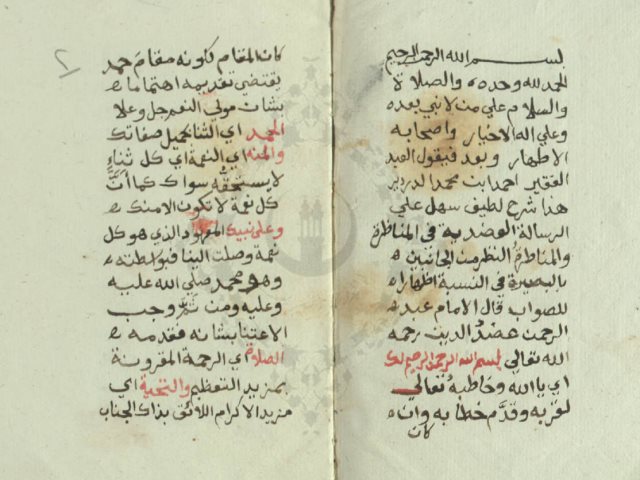 بسم الله الرحمن الرحيم
الحمد لله وحده والصلاة
والسلام علي من لا نبي بعده
وعلي اله الاخيار واصحابه
الاطهار وبعد فيقول العبد
الفقير احمد بن محمد الدردير
هذا شرح لطيف سهل علي
الرسالة العضديه في المناظرة
والمناظرةُ النظر من الجانبين
بالبصيرة في النسبة اظهارا
للصواب قال الامام عبد
الرحمن عضدُ الدين رحمه
الله تعالي بسم الله الرحمن الرحيم لك
اي يا الله وخاطبه تعالي
لقربه وقدَّم خطابه وان
كان
كان المقام لكونه مقامَ حمد
يقتضي تقديمه اهتماما
بشان مولي النعم جل وعلا
الحمد اي الثنا بجميل صفاتك
والمنه اي النعمة اي كل ثناءٍ
لا يستحقُّه سواك كما انَّ
كل نعمة لا تكون الا منك
وعلي نبيك المعهود الذي هو كل
نعمة وصلت الينا فبواسطته
وهو محمد صلي الله عليه
وعليه ومن ثمَّ وجب
الاعتنا بشانه فقدمه
الصلاة اي الرحمة المقرونة
بمزيد التعظيم والتحية اي
مزيد الاكرام اللائق بذاك الجناب